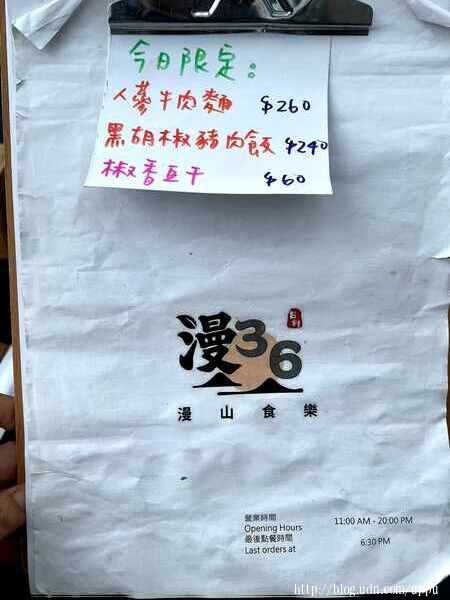 今日限定：
人蔘牛肉麵 $260
黑胡椒豬肉飯 $240
椒香豆干 $60
漫36
漫山食樂
營業時間 11:00 AM - 20:00 PM
Opening Hours
最後點餐時間 6:30 PM
Last orders at